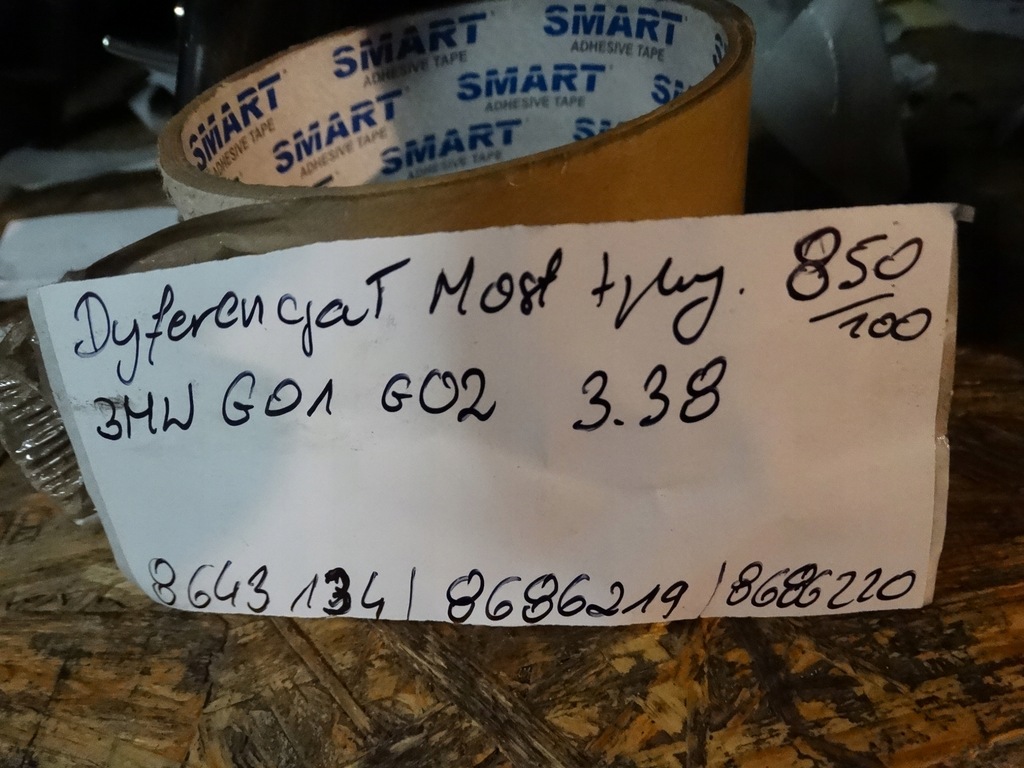 SMART ADHESIVE TAPE
SMART ADHESIVE TAPE
SMART ADHESIVE TAPE
SMART ADHESIVE TAPE
SMART ADHESIVE TAPE
SMART ADHESIVE TAPE
DyferencjaT Most tylny. 850/100
BMW G01 G02 3.38
8643134/ 8686219 /8686220